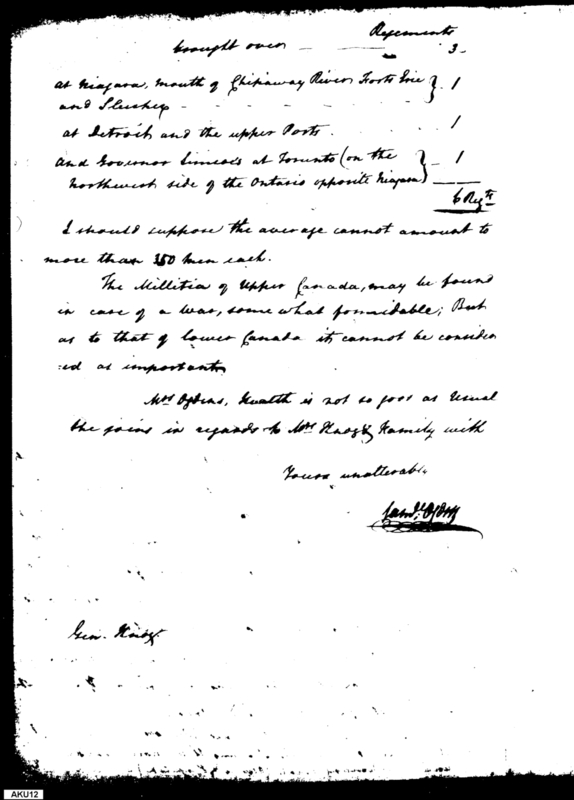 Regements
brought over — — 3
at Niagara, mouth of Chipaway River Forts Erie } 1
and Slusher - - - -
at Detroit and the upper Posts. 1
and Governor Simcoe's at Toronto (on the } 1
Northwest side of the Ontario opposite Niagara)
6 Regts
I should suppose the average cannot amount to
more than 350 Men each.
The Millitia of Upper Canada, may be found
in case of a war, some what formidable; But
as to that of lower Canada it cannot be consider
:ed as important
Mrs Ogdens, Health is not so good as Usual
She joins in regards to Mrs Knox & Family with
Yours unalterable
Saml. Ogden
Gen. Knox
AKU12